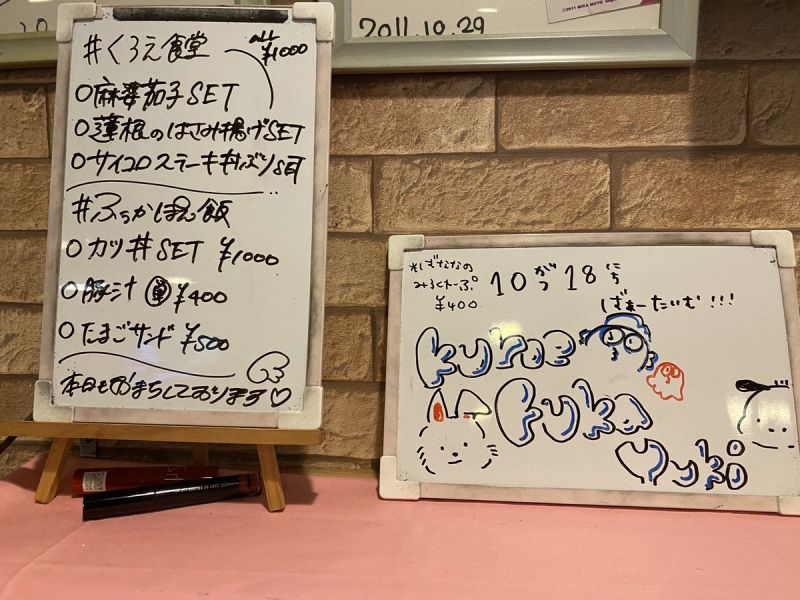 2011.10.29
#くろえ食堂
ALL ¥1000
○麻婆茄子SET
○蓮根のはさみ揚げSET
○サイコロステーキ丼ぶりSET
#ふうかぽん飯
○カツ丼SET ¥1000
○豚汁 単 ¥400
○たまごサンド ¥500
本日もおまちしております♡
*ばななの
みるくれーぷ
¥400
10がつ18にち
ばぁーたいむ!!!
kuroe
Fuka
yuki